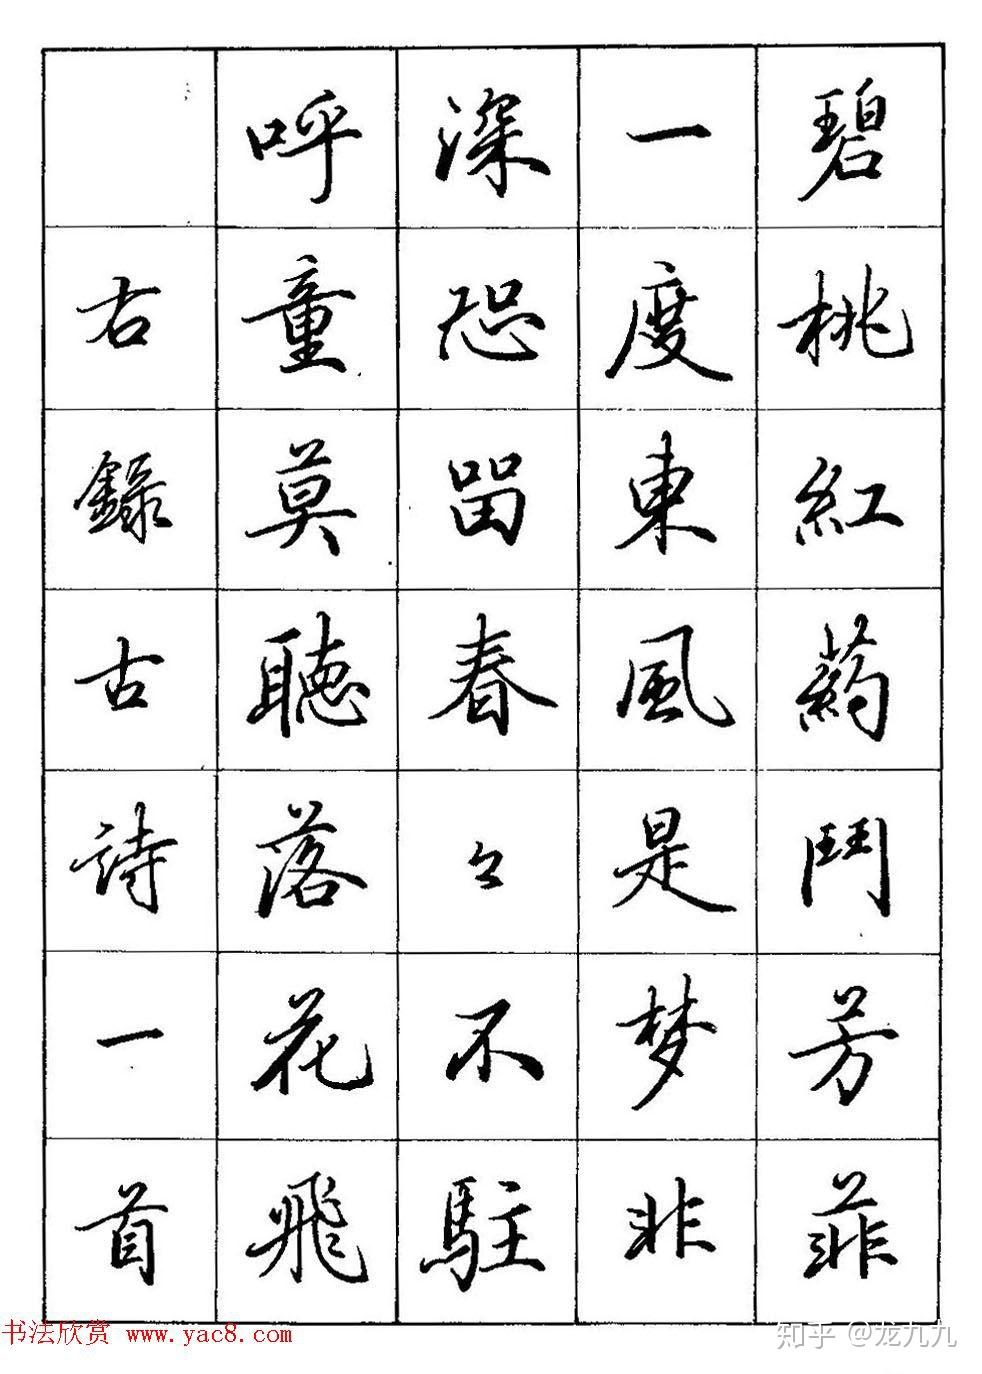 碧桃紅藥鬥芳菲
一度東風是梦非
深恐留春々不駐
呼童莫聽落花飛
右錄古詩一首
书法欣赏 www.yac8.com
知乎 @龙九九